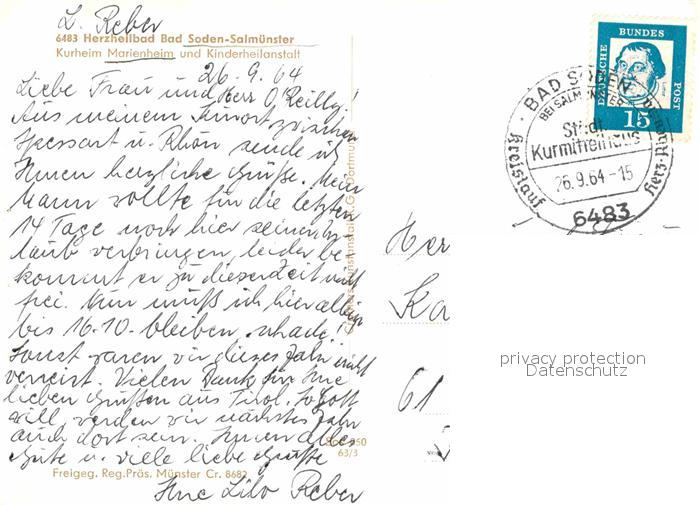 L. Reber
6483 Herzheilbad Bad Soden-Salmünster
Kurheim Marienheim und Kinderheilanstalt
26.9.64
Liebe Frau und Herr O'Reilly!
Aus meinem Kurort zwischen
Spessart u. Rhön sende ich
Ihnen herzliche Grüße. Mein
Mann wollte für die letzten
14 Tage noch hier seinen Ur
laub verbringen, leider be
kommt er zu dieser Zeit nicht
frei. Nun muß ich hier allein
bis 16.10. bleiben, schade!
Sonst waren wir dieses Jahr nicht
verreist. Vielen Dank für Ihre
lieben Grüßen aus Tirol. So Gott
will, werden wir nächstes Jahr
auch dort sein. Ihnen alles
Gute u. viele liebe Grüße
Ihre Lilo Reber
63/3
Freigeg. Reg.Präs. Münster Cr. 8682
DEUTSCHE BUNDESPOST
15
BAD SODEN
BEI SALMÜNSTER
Stadt
Kurmittelhaus
26.9.64-15
Kreislauf
Herz
6483
Her
Ka
61
privacy protection
Datenschutz